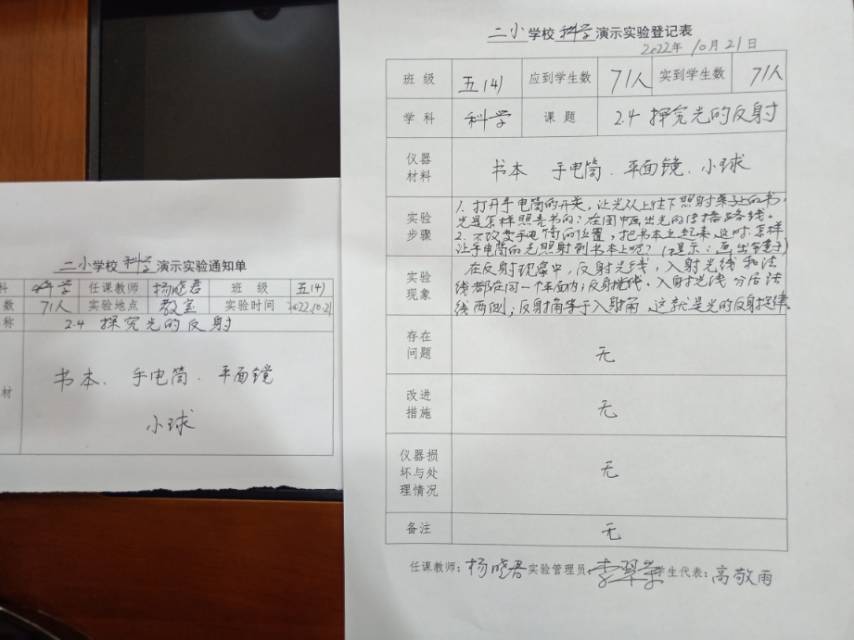 二小学校科学演示实验通知单
科 科学 任课教师 杨晓君 班 级 五(4)
数 71人 实验地点 教室 实验时间 2022.10.21
称 2.4 探究光的反射
材 书本、手电筒、平面镜
小球
二小学校科学演示实验登记表
2022年10月21日
班 级 五(4) 应到学生数 71人 实到学生数 71人
学 科 科学 课 题 2.4 探究光的反射
仪器材料 书本 手电筒、平面镜、小球
实验步骤
1. 打开手电筒的开关，让光从上往下照射桌子上的书，
光是怎样照亮书的；在图中画出光的传播路线。
2. 不改变手电筒的位置，把书本立起来，这时，怎样
让手电筒的光照射到书本上呢？
实验现象
在反射现象中，反射光线，入射光线和法
线都在同一个平面内；反射光线、入射光线分居法
线两侧；反射角等于入射角。这就是光的反射定律。
存在问题 无
改进措施 无
仪器损坏与处理情况 无
备注 无
任课教师：杨晓君 实验管理员：李翠荣 学生代表：高敬雨